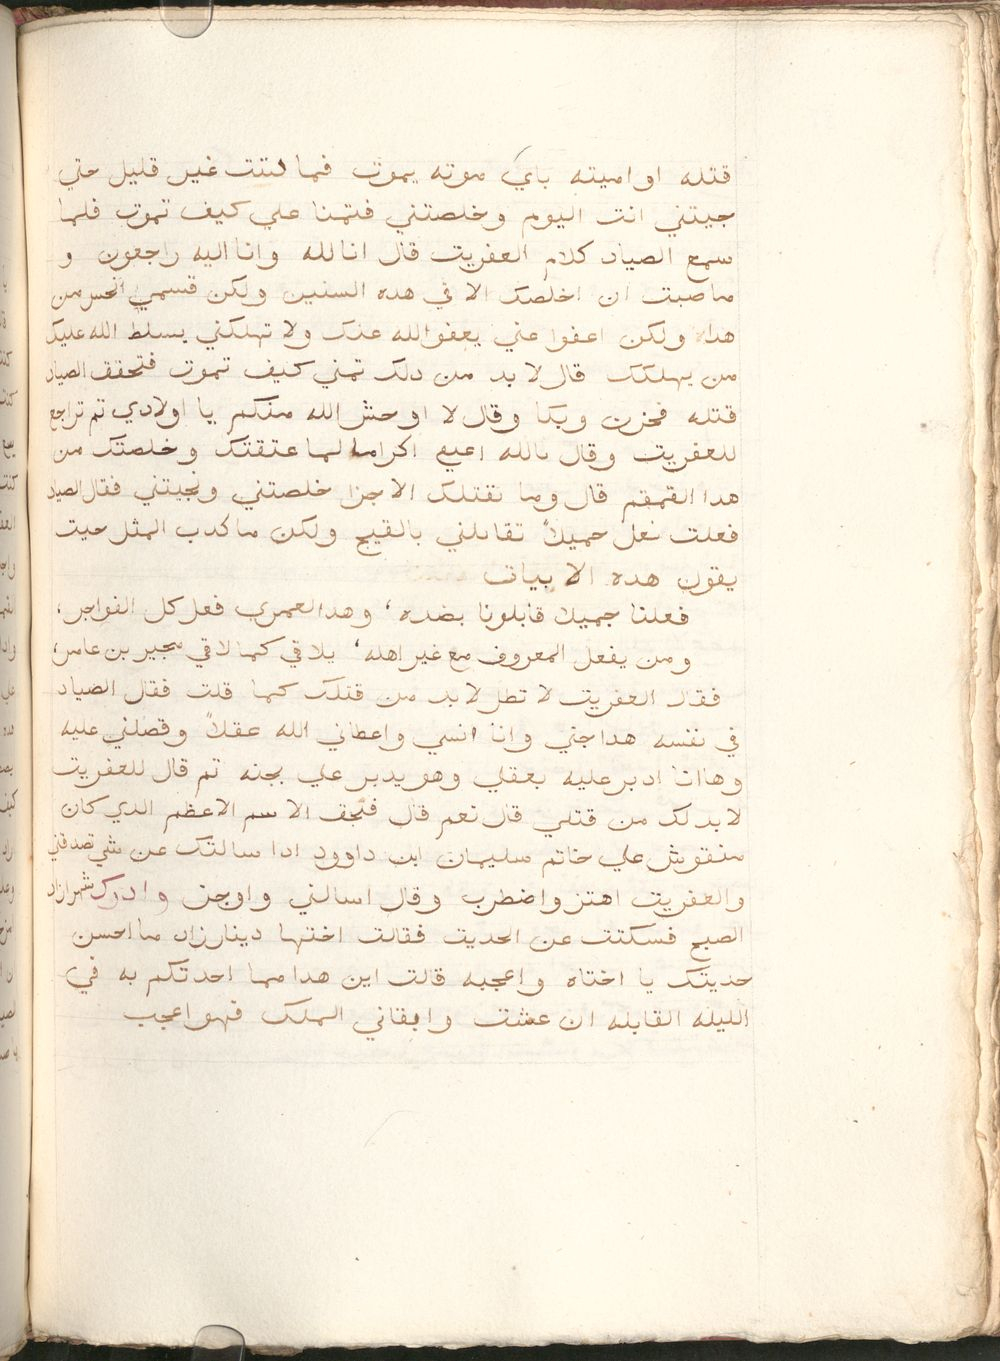 قتله او اميته باي موته يموت فما لبتت غير قليل حتي
جيتني انت اليوم وخلصتني فتمنا علي كيف تموت فلما
سمع الصياد كلام العفريت قال انالله وانا اليه راجعون و
ماصبت ان اخلصك الا في هده السنين ولكن قسمي انحس من
هدا ولكن اعفوا عني يعفوالله عنك ولا تهلكني يسلط الله عليك
من يهلكك قال لا بد من دلك تمني كيف تموت فتحقق الصياد
قتله فحزن وبكا وقال لا اوحش الله منكم يا اولادي تم تراجع
للعفريت وقال بالله اعيع اكراما لما عتقتك وخلصتك من
هدا القمقم قال وما نقتلك الا جزا خلصتني ونجيتني فقال الصياد
فعلت نعل جميلاً تقابلني بالقبيح ولكن ماكدب المثل حيت
يقون هده الابيات
فعلنا جميلا قابلونا بضده، وهدا لعمري فعل كل الفواجر،
ومن يفعل المعروف مع غير اهله، يلاقي كما لاقي مجير بن عامر،
فقال العفريت لا تطل لا بد من قتلك كما قلت فقال الصياد
في نفسه هدا جني وانا انسي واعطاني الله عقلاً وفضلني عليه
وها انا ادبر عليه بعقلي وهو يدبر علي بجنه تم قال للعفريت
لا بد لك من قتلي قال نعم قال فبحق الاسم الاعظم الدي كان
منقوش علي خاتم سليمان ابن داوود ادا سالتك عن شي تصدقني
والعفريت اهتز واضطرب وقال اسالني واوجز وادرك شهرازاد
الصبح فسكتت عن الحديت فقالت اختها دينارزاد ما احسن
حديتك يا اختاه واعجبه قالت اين هدا مما احدتكم به في
الليله القابله ان عشت وابقاني الملك فهو اعجب